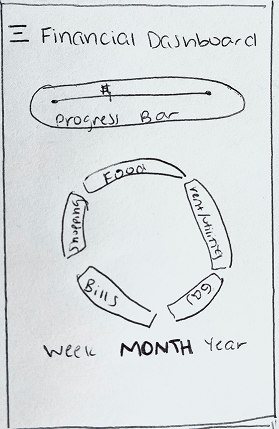 Financial Dashboard
#
Progress Bar
Food
Shopping
rent/utiliing
Bills
Gas
Week MONTH Year